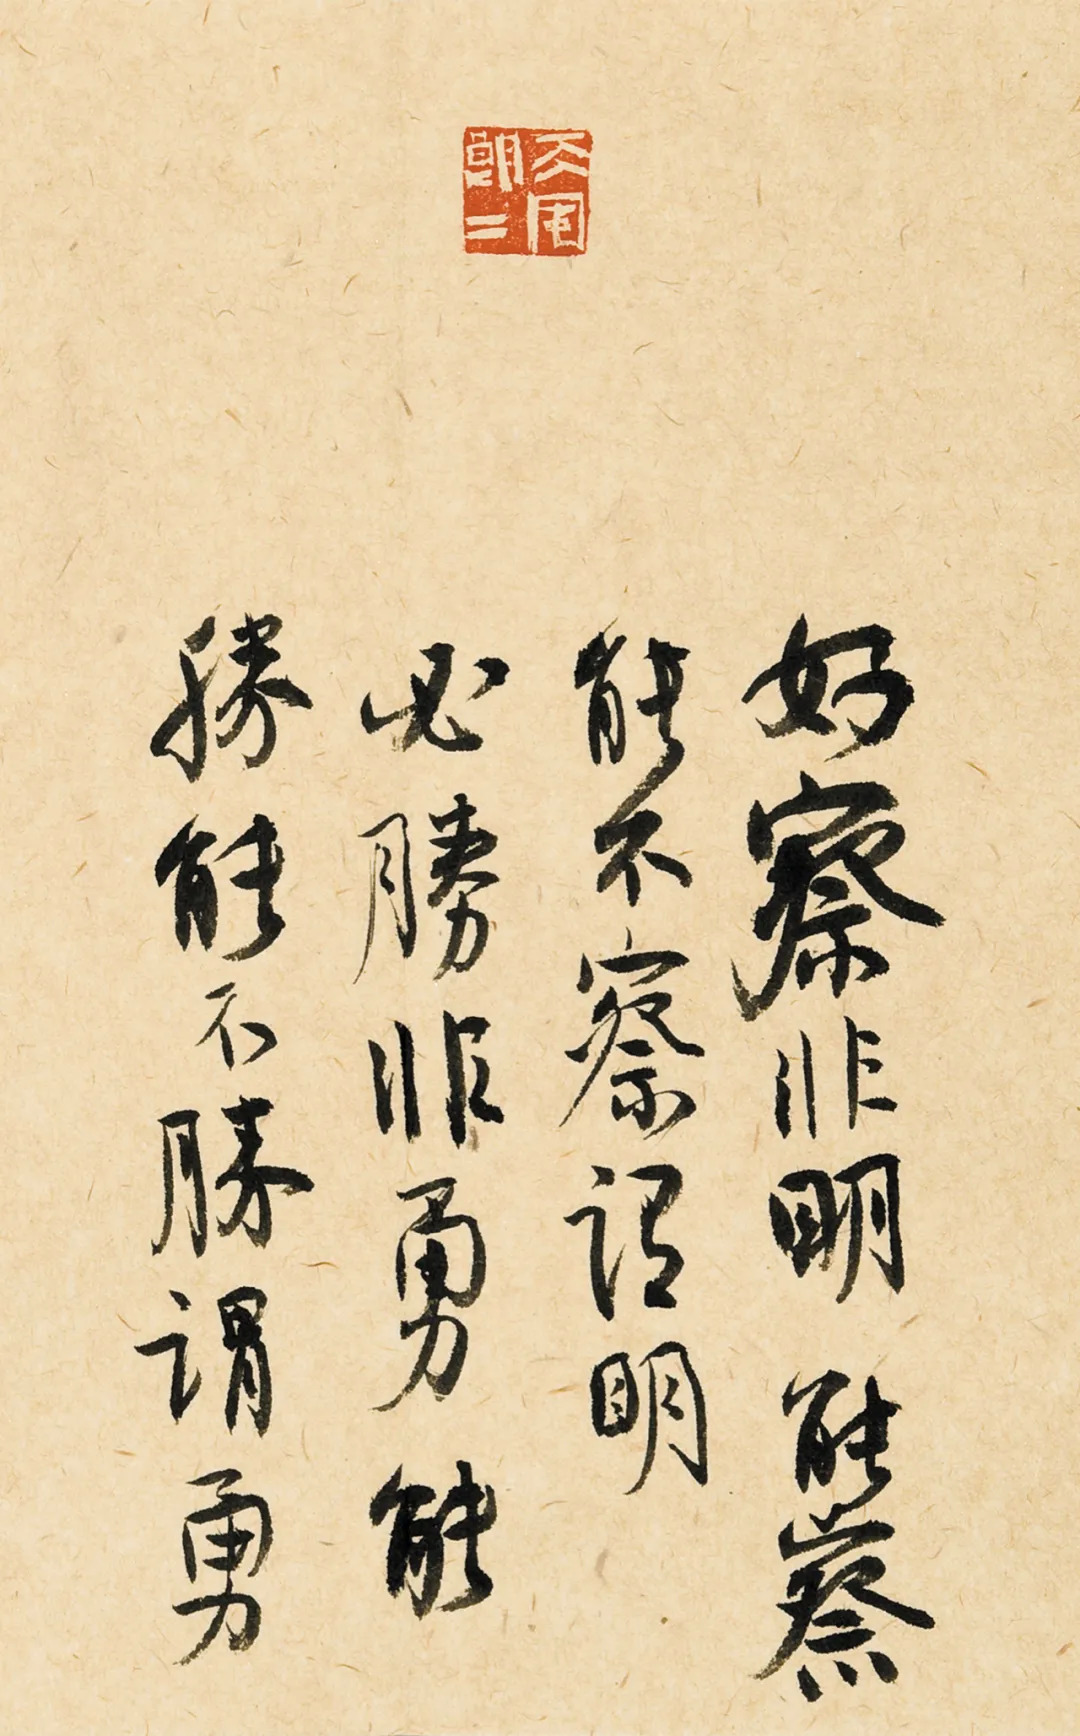 好察非明能察
能不察謂明
必勝非勇能
勝能不勝謂勇